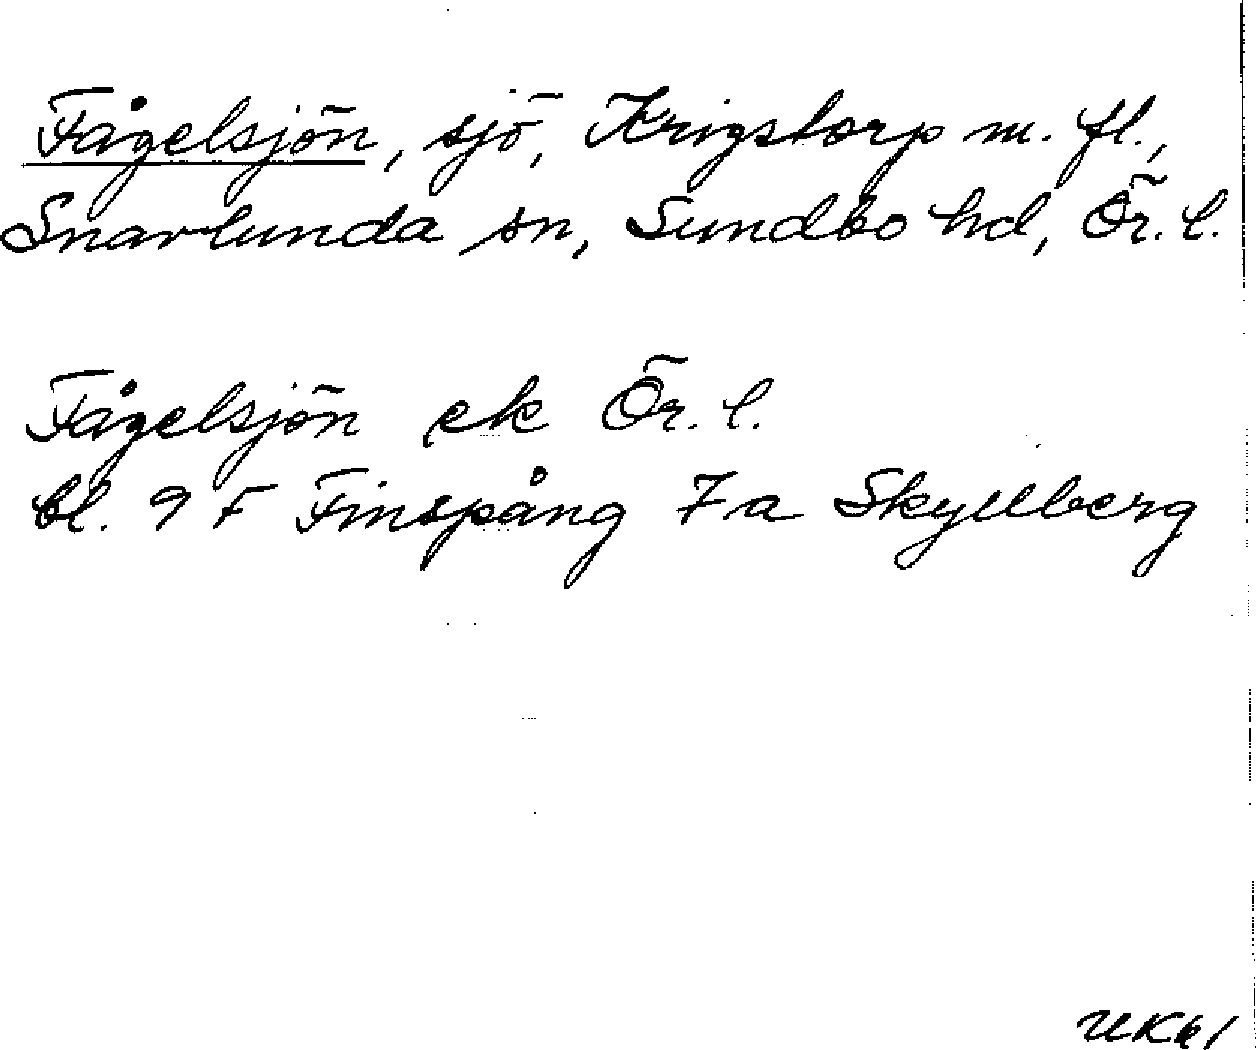 Fågelsjön, sjö, Krigstorp m. fl.,
Snavlunda sn, Sundbo hd, Ör. l.
Fågelsjön ek Ör. l.
bl. 9 F Finspång 7a Skyllberg